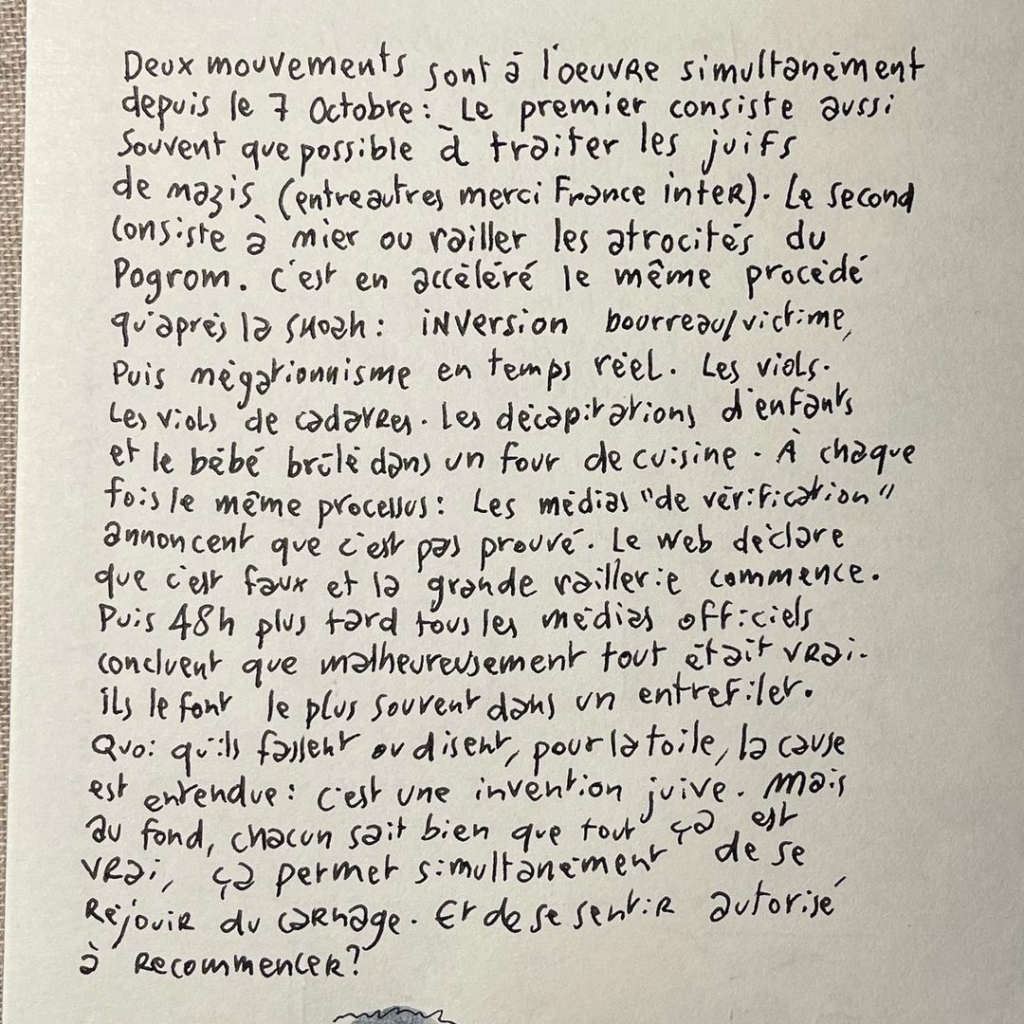 Deux mouvements sont à l'oeuvre simultanément
depuis le 7 Octobre: Le premier consiste aussi
Souvent que possible à traiter les juifs
de nazis (entre autres merci France inter). Le second
consiste à nier ou railler les atrocités du
Pogrom. C'est en accéléré le même procédé
qu'après la SHOAH: inversion bourreau/victime,
Puis négationnisme en temps réel. Les viols.
Les viols de cadavres. Les décapitations d'enfants
et le bébé brûlé dans un four de cuisine. À chaque
fois le même processus: Les médias "de vérification"
annoncent que c'est pas prouvé. Le web déclare
que c'est faux et la grande raillerie commence.
Puis 48h plus tard tous les médias officiels
concluent que malheureusement tout était vrai.
ils le font le plus souvent dans un entrefilet.
Quoi qu'ils fassent ou disent, pour la toile, la cause
est entendue: c'est une invention juive. Mais
au fond, chacun sait bien que tout ça est
vrai, ça permet simultanément de se
Réjouir du carnage. Et de se sentir autorisé
à recommencer?